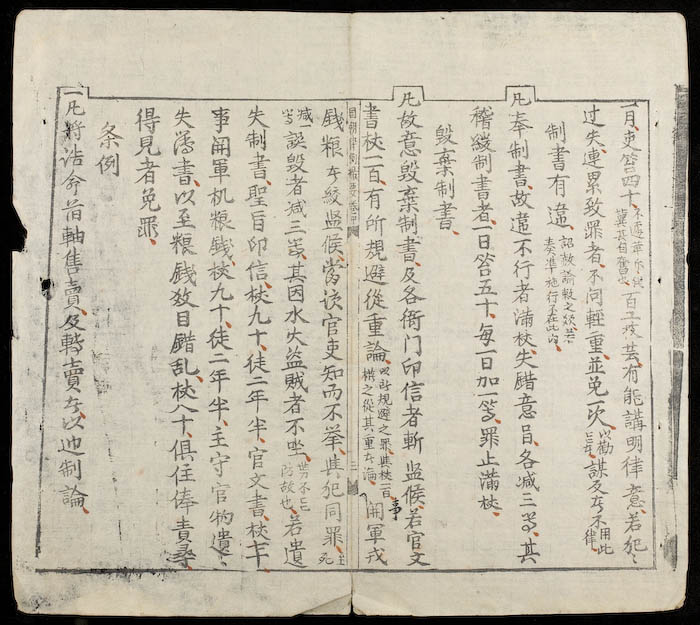 一月、吏笞四十、冀其自奮也百工技芸有能講明律意、若犯
过失、連累致罪者、不问輕重並免一次、以勸謀反等不用此律
制書有違、奏準施行不在此内
凡奉制書故違不行者满杖、失錯意旨、各减三等、其
稽緩制書者一日笞五十、每一日加一等、罪止满杖、
毀棄制書、
凡故意毀棄制書及各衙门印信者斬監候、若官文
書杖一百、有所規避從重論、以所規避之罪與杖一百從其重者論事関軍戎
錢粮者絞監候、當该官吏知而不举、與犯同罪、至死
减一等誤毀者减三等、其因水火盗賊者不坐、防故也若遺
失制書、聖旨印信、杖九十、徒二年半、官文書、杖七十、
事関軍机粮錢杖九十、徒二年半、主守官物遺
失簿書、以至粮錢数目錯乱、杖八十、俱住俸責尋
得見者免罪、
条例
一凡將誥命首軸售賣、及轉賣者以违制論、